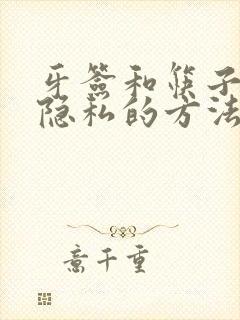 牙签和筷子
隐私的方法
意千重